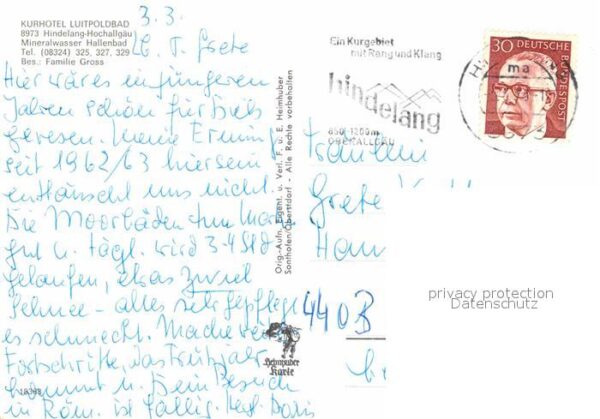 KURHOTEL LUITPOLDBAD
8973 Hindelang-Hochallgäu
Mineralwasser Hallenbad
Tel. (08324) 325, 327, 329
Bes.: Familie Gross
3.3.
Lb. T. Grete
Hier wäre es in jüngeren
Jahren schön für Dich
gewesen. Meine Erinn
seit 1962/63 hier sein
enttäuscht uns nicht.
Die Moorbäder tun
gut u. tägl. wird 3-4 Std
gelaufen, etwas zuviel
Schnee - alles sehr gepflegt
es schmeckt. Mache
Fortschritte, das Frühjahr
kommt u. Dein Besuch
in Köln. ist fällig. Hzl. Doris
18368
Orig.-Aufn. Eigent. u. Verl. F. u. E. Heimhuber
Sonthofen/Oberstdorf - Alle Rechte vorbehalten
Heimhuber
Karte
Ein Kurgebiet
mit Rang und Klang
hindelang
850-1200m
OBERALLGÄU
ma
30 DEUTSCHE
BUNDESPOST
Fräulein
Grete
Hau
440B
privacy protection
Datenschutz